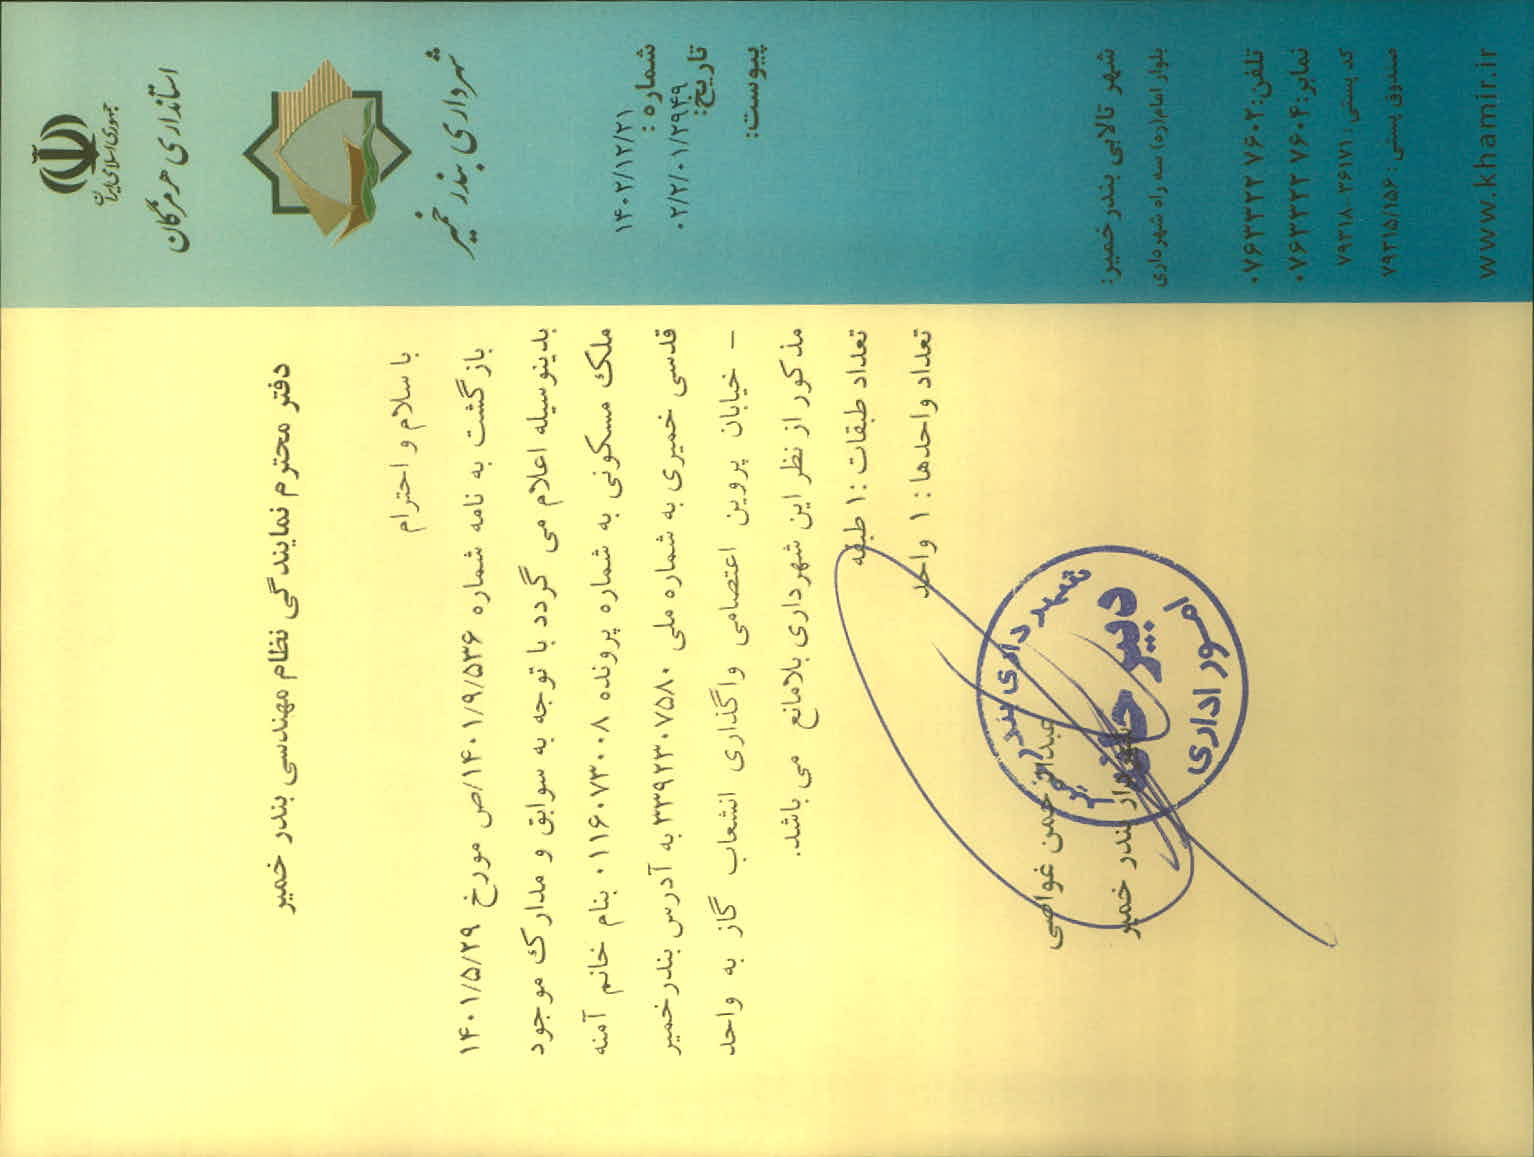 جمهوری اسلامی ایران
استانداری هرمزگان
شهرداری بندر خمیر
شماره :
۱۴۰۲/۱۲/۲۱
تاریخ:
۰۲/۲/۰۱/۲۹۴۹
پیوست:
دفتر محترم نمایندگی نظام مهندسی بندر خمیر
با سلام و احترام
بازگشت به نامه شماره ۱۴۰۱/۹/۵۳۶/ص مورخ ۱۴۰۱/۵/۲۹
بدینوسیله اعلام می گردد با توجه به سوابق و مدارک موجود
ملک مسکونی به شماره پرونده ۰۱۱۶۰۷۳۰۰۸ بنام خانم آمنه
قدسی خمیری به شماره ملی ۳۳۹۲۳۰۷۵۸۰ به آدرس بندرخمیر
– خیابان پروین اعتصامی واگذاری انشعاب گاز به واحد
مذکور از نظر این شهرداری بلامانع می باشد.
تعداد طبقات :۱ طبقه
تعداد واحدها : ۱ واحد
عبدالرحمن غواصی
شهردار بندر خمیر
شهرداری بندر خمیر
دبیرخانه
امور اداری
شهر تالابی بندر خمیر:
بلوار امام(ره) سه راه شهرداری
تلفن: ۰۷۶۳۳۲۲۷۶۰۲
نمابر: ۰۷۶۳۳۲۲۷۶۰۴
کد پستی : ۷۹۳۱۸-۳۶۱۷۱
صندوق پستی : ۷۹۳۱۵/۱۵۶
www.khamir.ir